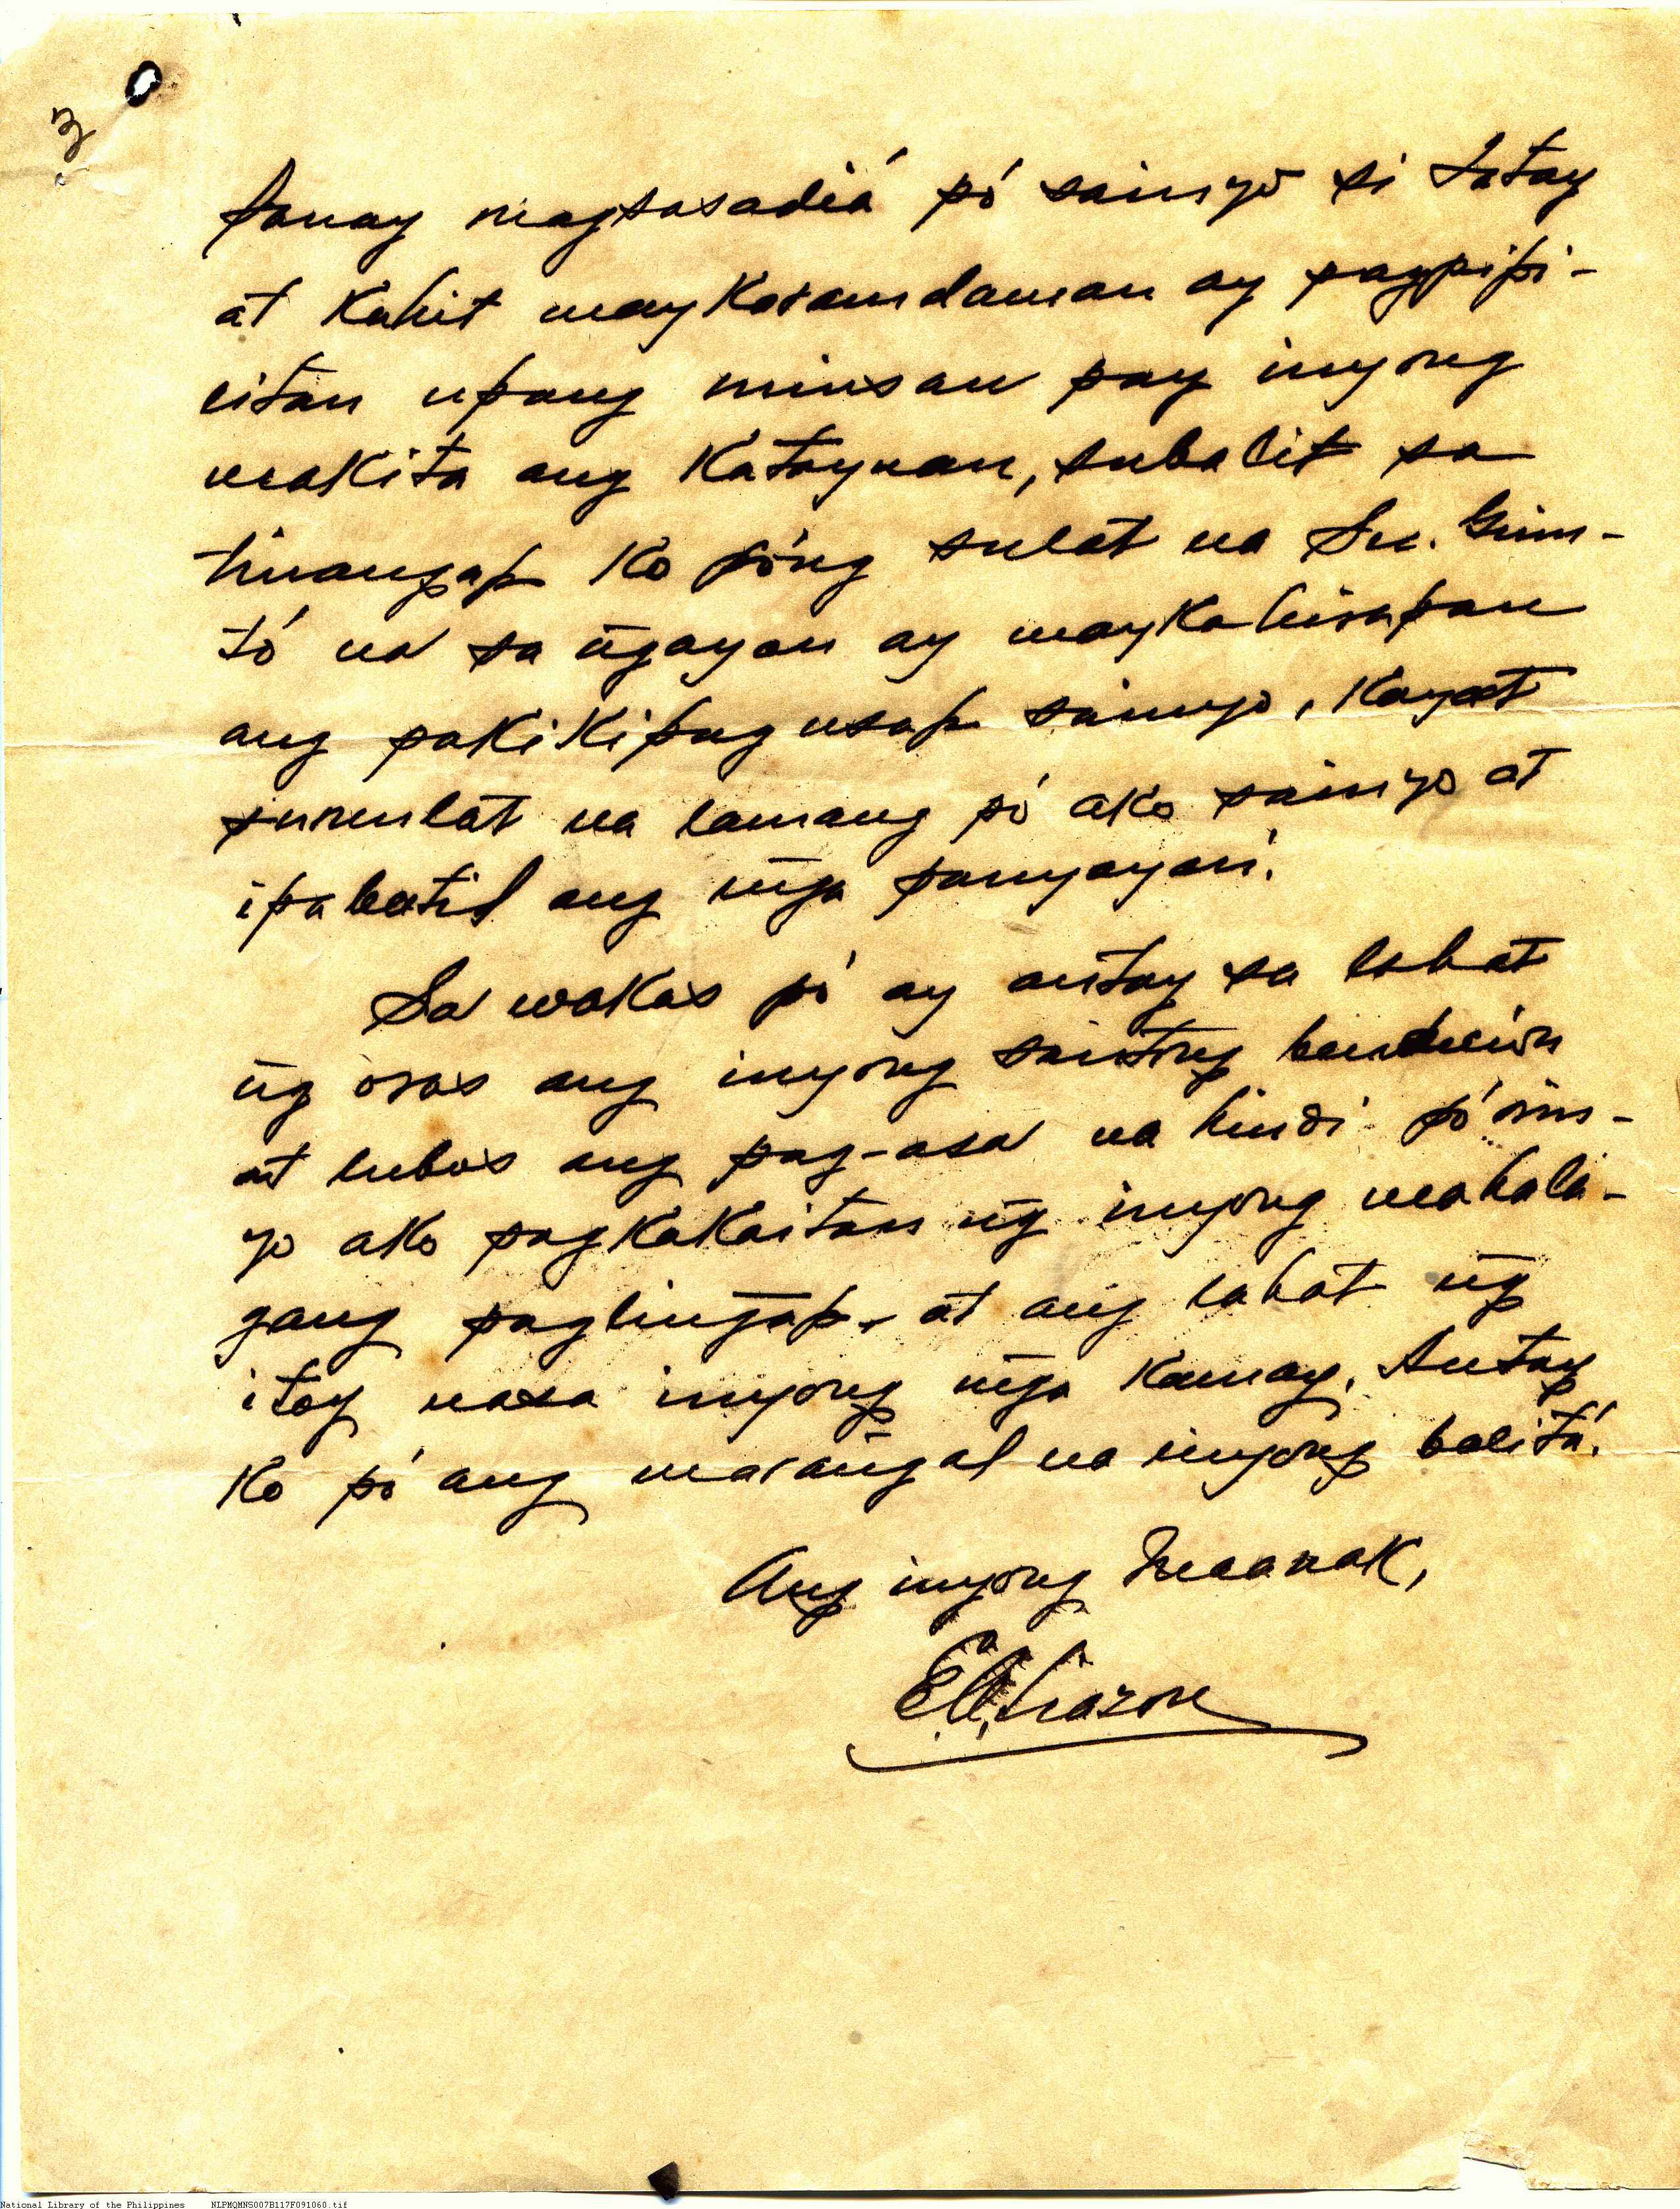 3
Panay magsasadiá pó sainyo si Tatay
at kahit may karamdaman ay pagpipi-
litan upang minsan pay inyong
makita ang katayuan, subalit sa
tinangap ko póng sulat na Sr. Guin-
tó na sa ñgayon ay maykahirapan
ang pakikipag usap sainyo, kayat
sumulat na lamang pó ako sainyo at
ipabatid ang mg̃a panyayari.
Sa wakas pó ay antay sa lahat
ng̃ oras ang inyong santong bendición
at lubos ang pag-asa na hindi pó nin-
yo ako pagkakaitan ng̃ inyong mahala-
gang pagling̃ap, at ang lahat ng̃
itoy nasa inyong mg̃a kamay. Antay
ko pó ang marang̃al na inyong balitá.
Ang inyong Inaanak,
National Library of the Philippines NLPMQMNS007B117F091060.tif